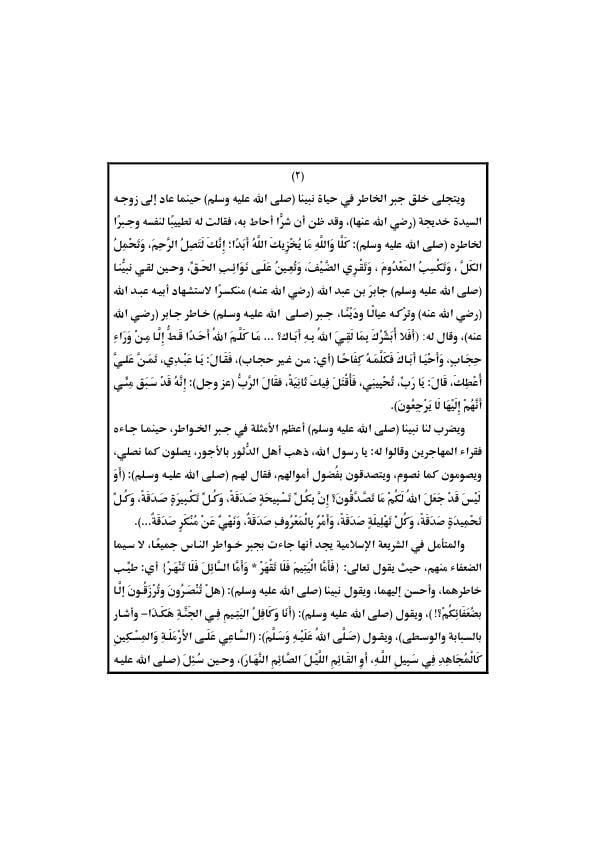 (٢)
ويتجلى خلق جبر الخاطر في حياة نبينا (صلى الله عليه وسلم) حينما عاد إلى زوجه
السيدة خديجة (رضي الله عنها)، وقد ظن أن شرًّا أحاط به، فقالت له تطييبًا لنفسه وجبرًا
لخاطره (صلى الله عليه وسلم): كَلَّا وَاللَّهِ مَا يُخْزِيكَ اللَّهُ أَبَدًا؛ إِنَّكَ لَتَصِلُ الرَّحِمَ، وَتَحْمِلُ
الكَلَّ ، وَتَكْسِبُ المَعْدُومَ ، وَتَقْرِي الضَّيْفَ، وَتُعِينُ عَلَى نَوَائِبِ الحَقِّ، وحين لقي نبيُّنا
(صلى الله عليه وسلم) جابرَ بن عبد الله (رضي الله عنه) منكسرًا لاستشهاد أبيه عبد الله
(رضي الله عنه) وتركه عيالًا ودَيْنًا، جبر (صلى الله عليه وسلم) خاطر جابر (رضي الله
عنه)، وقال له: (أَفَلا أُبَشِّرُكَ بِمَا لَقِيَ اللهُ بِهِ أَبَاكَ؟ ... مَا كَلَّمَ اللهُ أَحَدًا قَطُّ إِلَّا مِنْ وَرَاءِ
حِجَابٍ، وَأَحْيَا أَبَاكَ فَكَلَّمَهُ كِفَاحًا (أي: من غير حجاب)، فَقَالَ: يَا عَبْدِي، تَمَنَّ عَلَيَّ
أُعْطِكَ، قَالَ: يَا رَبِّ، تُحْيِينِي، فَأُقْتَلَ فِيكَ ثَانِيَةً، فقَالَ الرَّبُّ (عز وجل): إِنَّهُ قَدْ سَبَقَ مِنِّي
أَنَّهُمْ إِلَيْهَا لَا يَرْجِعُونَ).
ويضرب لنا نبينا (صلى الله عليه وسلم) أعظم الأمثلة في جبر الخواطر، حينما جاءه
فقراء المهاجرين وقالوا له: يا رسول الله، ذهب أهل الدُّثُور بالأجور، يصلون كما نصلي،
ويصومون كما نصوم، ويتصدقون بفُضول أموالهم، فقال لهم (صلى الله عليه وسلم): (أَوَ
لَيْسَ قَدْ جَعَلَ اللهُ لَكُمْ مَا تَصَّدَّقُونَ؟ إِنَّ بِكُلِّ تَسْبِيحَةٍ صَدَقَةً، وَكُلِّ تَكْبِيرَةٍ صَدَقَةً، وَكُلِّ
تَحْمِيدَةٍ صَدَقَةً، وَكُلِّ تَهْلِيلَةٍ صَدَقَةً، وَأَمْرٌ بِالْمَعْرُوفِ صَدَقَةٌ، وَنَهْيٌ عَنْ مُنْكَرٍ صَدَقَةٌ...).
والمتأمل في الشريعة الإسلامية يجد أنها جاءت بجبر خواطر الناس جميعًا، لا سيما
الضعفاء منهم، حيث يقول تعالى: {فَأَمَّا الْيَتِيمَ فَلَا تَقْهَرْ * وَأَمَّا السَّائِلَ فَلَا تَنْهَرْ} أي: طيِّب
خاطرهما، وأحسن إليهما، ويقول نبينا (صلى الله عليه وسلم): (هلْ تُنْصَرُونَ وتُرْزَقُونَ إلَّا
بضُعَفَائِكُمْ؟!)، ويقول (صلى الله عليه وسلم): (أَنَا وَكَافِلُ اليَتِيمِ فِي الجَنَّةِ هَكَذَا– وأشار
بالسبابة والوسطى)، ويقول (صَلَّى اللهُ عَلَيْهِ وَسَلَّمَ): (السَّاعِي عَلَى الأَرْمَلَةِ وَالمِسْكِينِ
كَالْمُجَاهِدِ فِي سَبِيلِ اللَّهِ، أَوِ القَائِمِ اللَّيْلَ الصَّائِمِ النَّهَارَ)، وحين سُئِلَ (صلى الله عليه